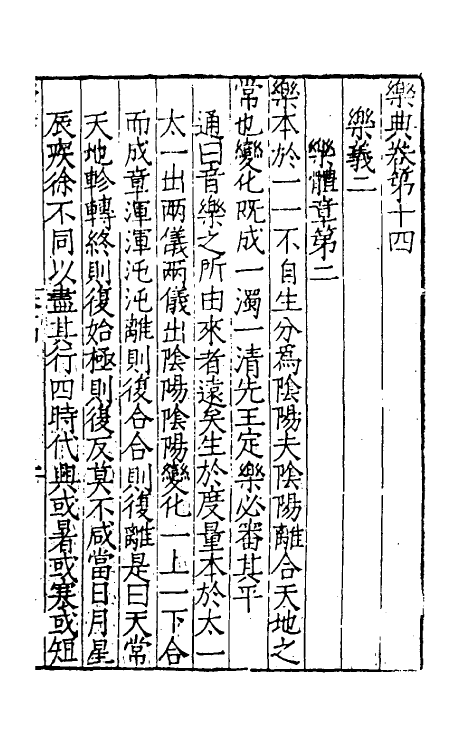 樂典卷第十四
樂義二
樂體章第二
樂本於一一不自生分爲陰陽夫陰陽離合天地之
常也變化旣成一濁一清先王定樂必審其平
通曰音樂之所由來者遠矣生於度量本於太一
太一出兩儀兩儀出陰陽陰陽變化一上一下合
而成章渾渾沌沌離則復合合則復離是曰天常
天地軫轉終則復始極則復反莫不咸當日月星
辰疾徐不同以盡其行四時代興或暑或寒或短